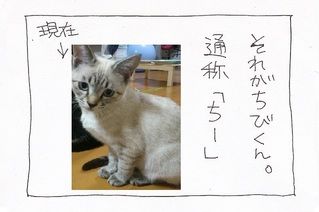 それがちびくん。
通称「ちー」
現在